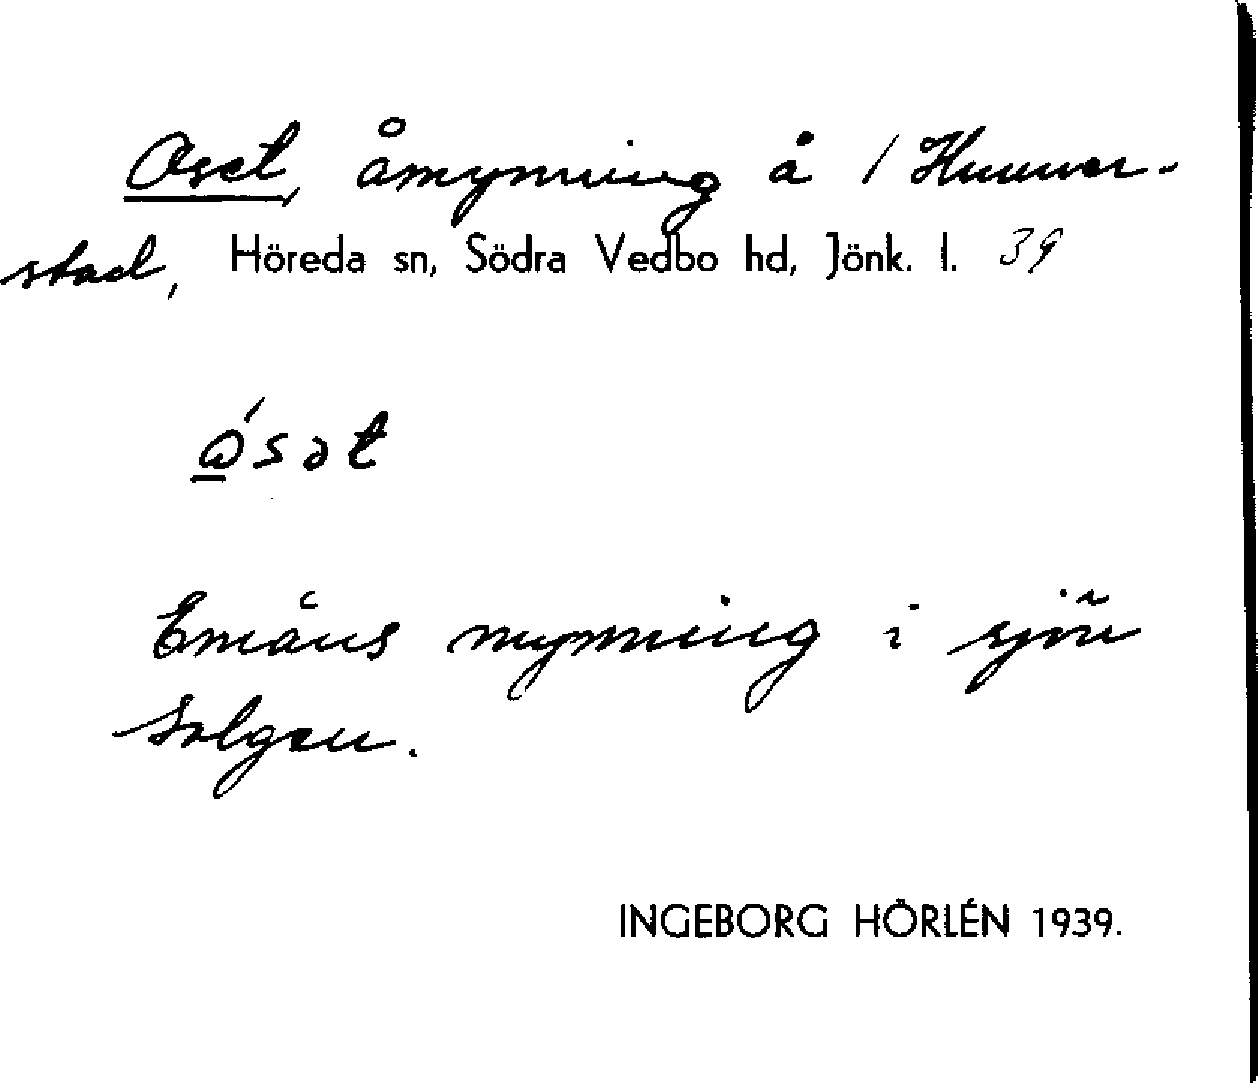 Oset, åmynning å / Hunner-
stad, Höreda sn, Södra Vedbo hd, Jönk. l. 39
ósət
Emåns mynning i sjön
Solgen.
INGEBORG HÖRLÉN 1939.